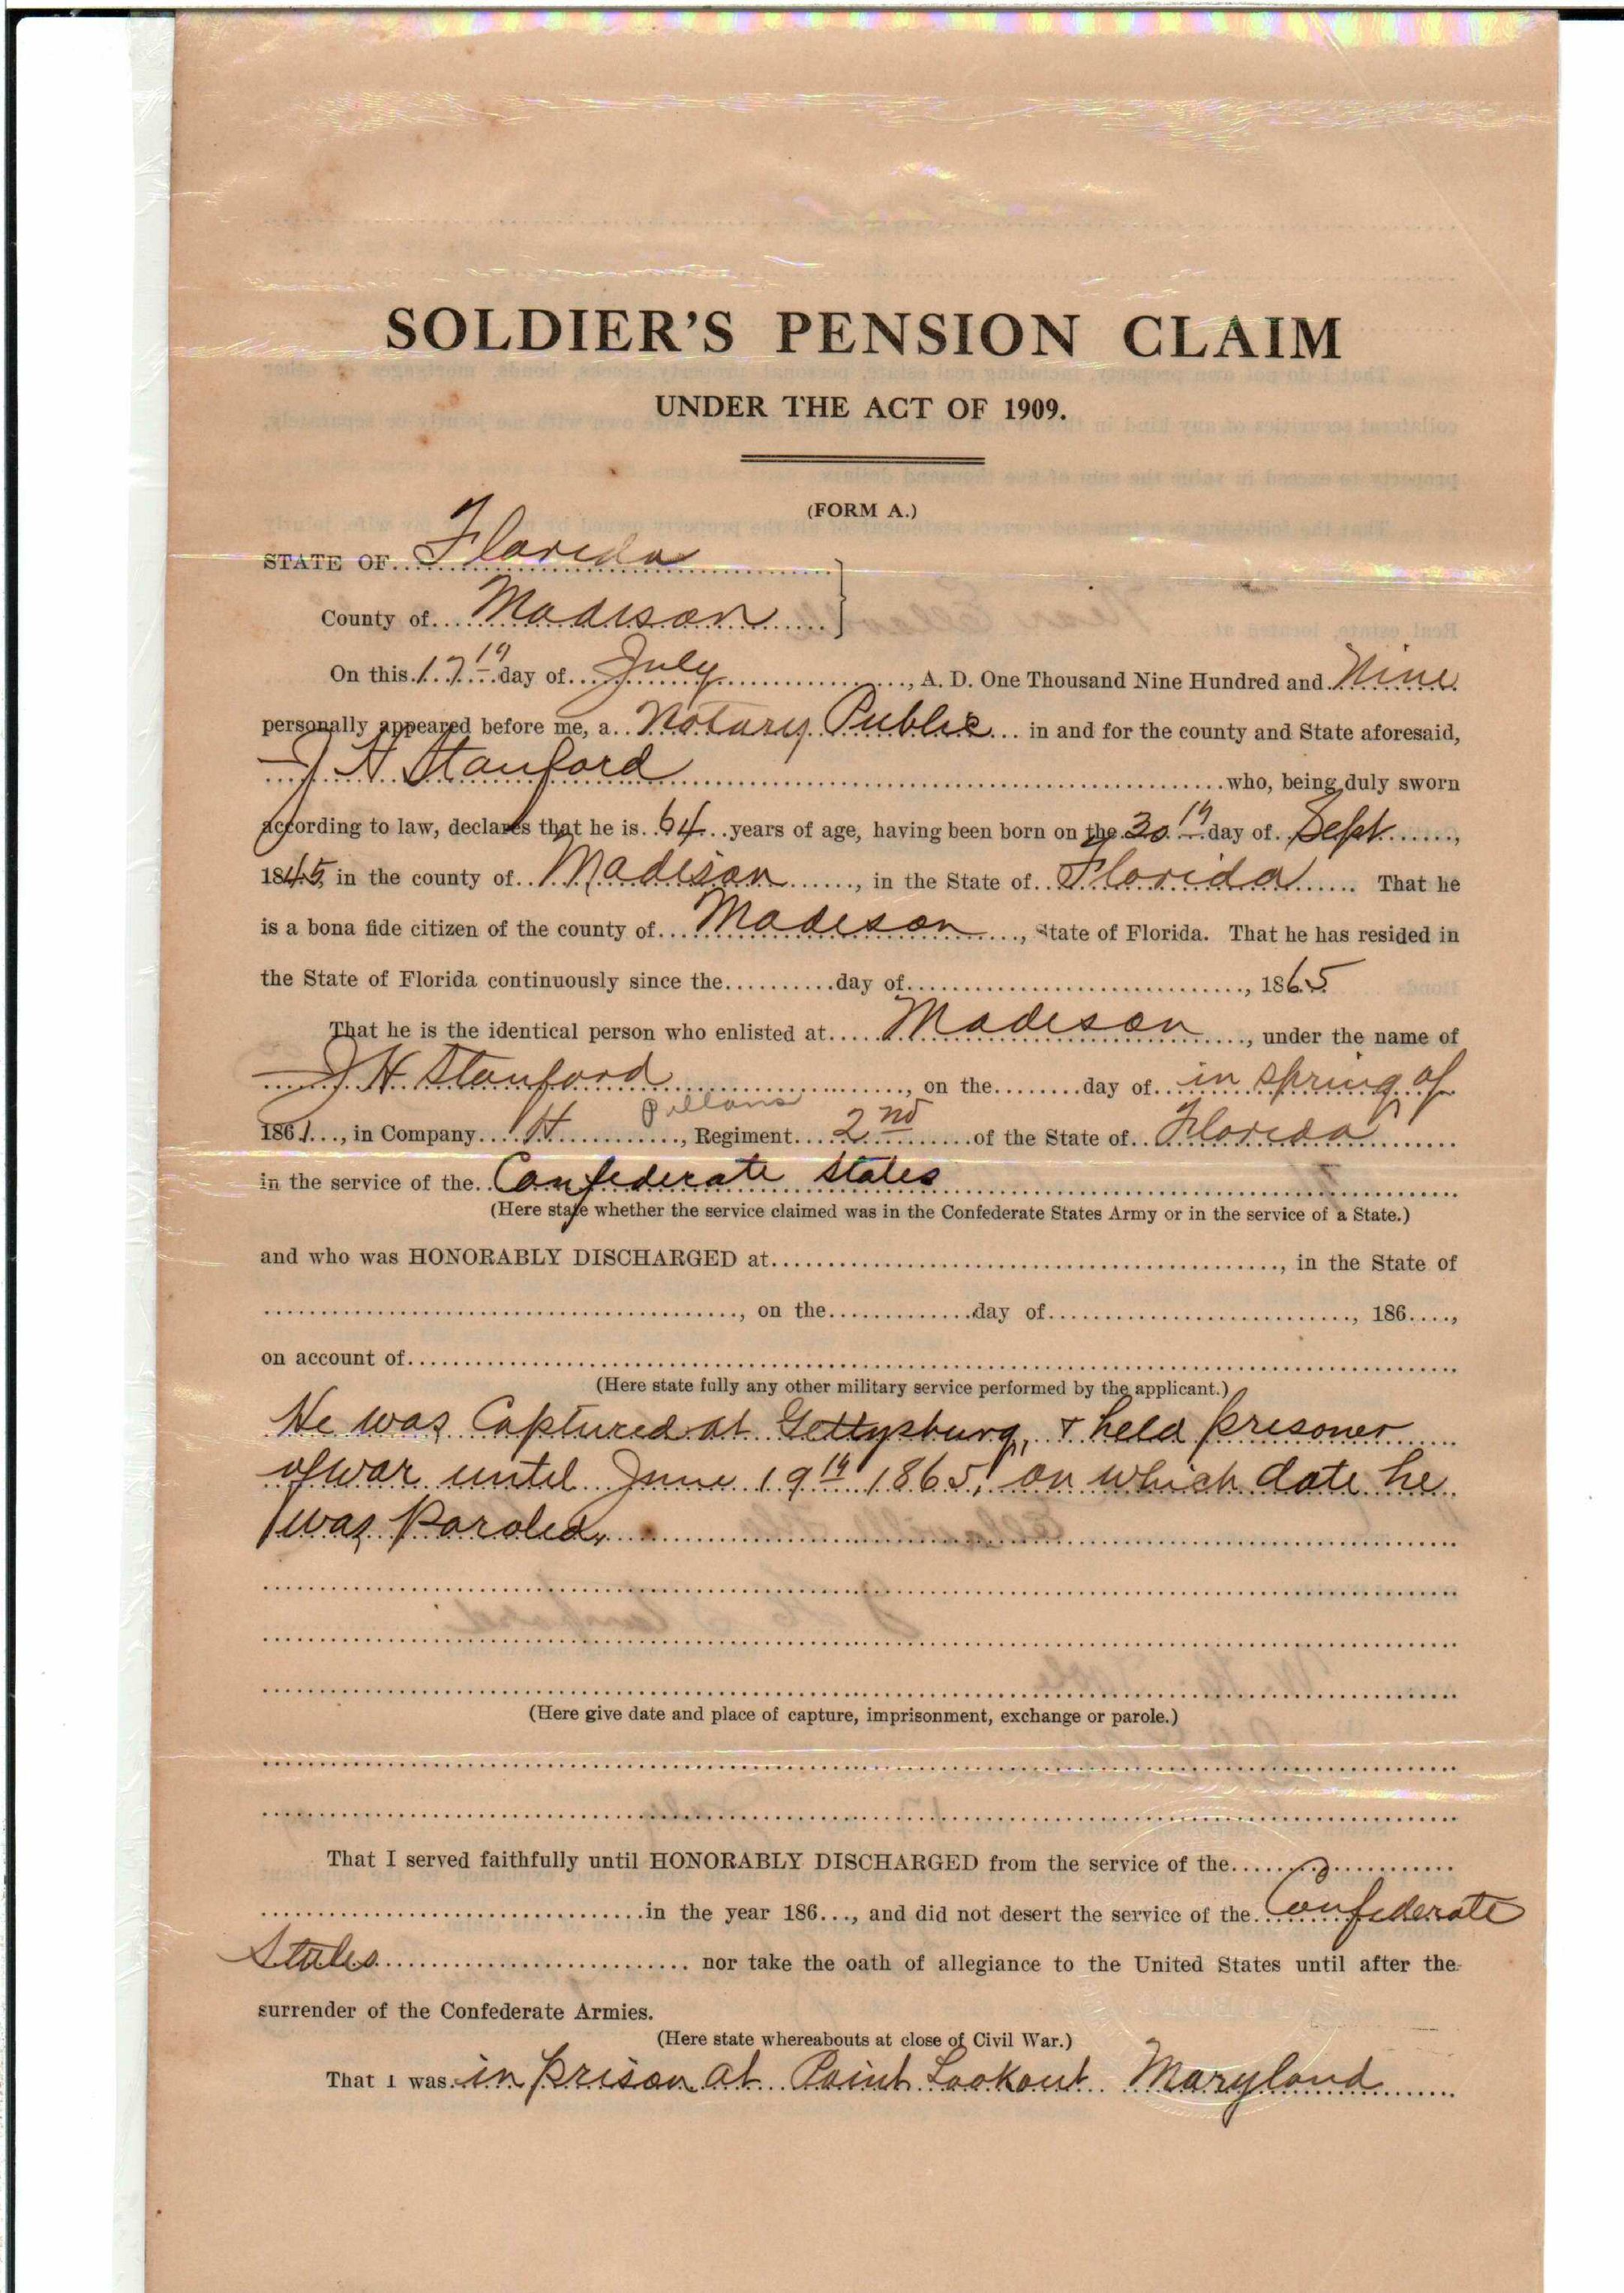 SOLDIER'S PENSION CLAIM
UNDER THE ACT OF 1909.
(FORM A.)
STATE OF Florida
County of Madison
On this 17th day of July, A. D. One Thousand Nine Hundred and Nine
personally appeared before me, a Notary Public in and for the county and State aforesaid,
J H Stanford who, being duly sworn
according to law, declares that he is 64 years of age, having been born on the 30th day of Sept,
1845, in the county of Madison, in the State of Florida That he
is a bona fide citizen of the county of Madison, State of Florida. That he has resided in
the State of Florida continuously since the day of, 1865
That he is the identical person who enlisted at Madison, under the name of
J H Stanford, on the day of in spring of
Pillans
1861, in Company H, Regiment 2nd of the State of Florida
in the service of the Confederate States
(Here state whether the service claimed was in the Confederate States Army or in the service of a State.)
and who was HONORABLY DISCHARGED at, in the State of
, on the day of, 186,
on account of
(Here state fully any other military service performed by the applicant.)
He was Captured at Gettysburg, & held prisoner
of war until June 19th 1865, on which date he
was Paroled,
(Here give date and place of capture, imprisonment, exchange or parole.)
That I served faithfully until HONORABLY DISCHARGED from the service of the
in the year 186, and did not desert the service of the Confederate
States nor take the oath of allegiance to the United States until after the
surrender of the Confederate Armies.
(Here state whereabouts at close of Civil War.)
That I was in prison at Point Lookout Maryland